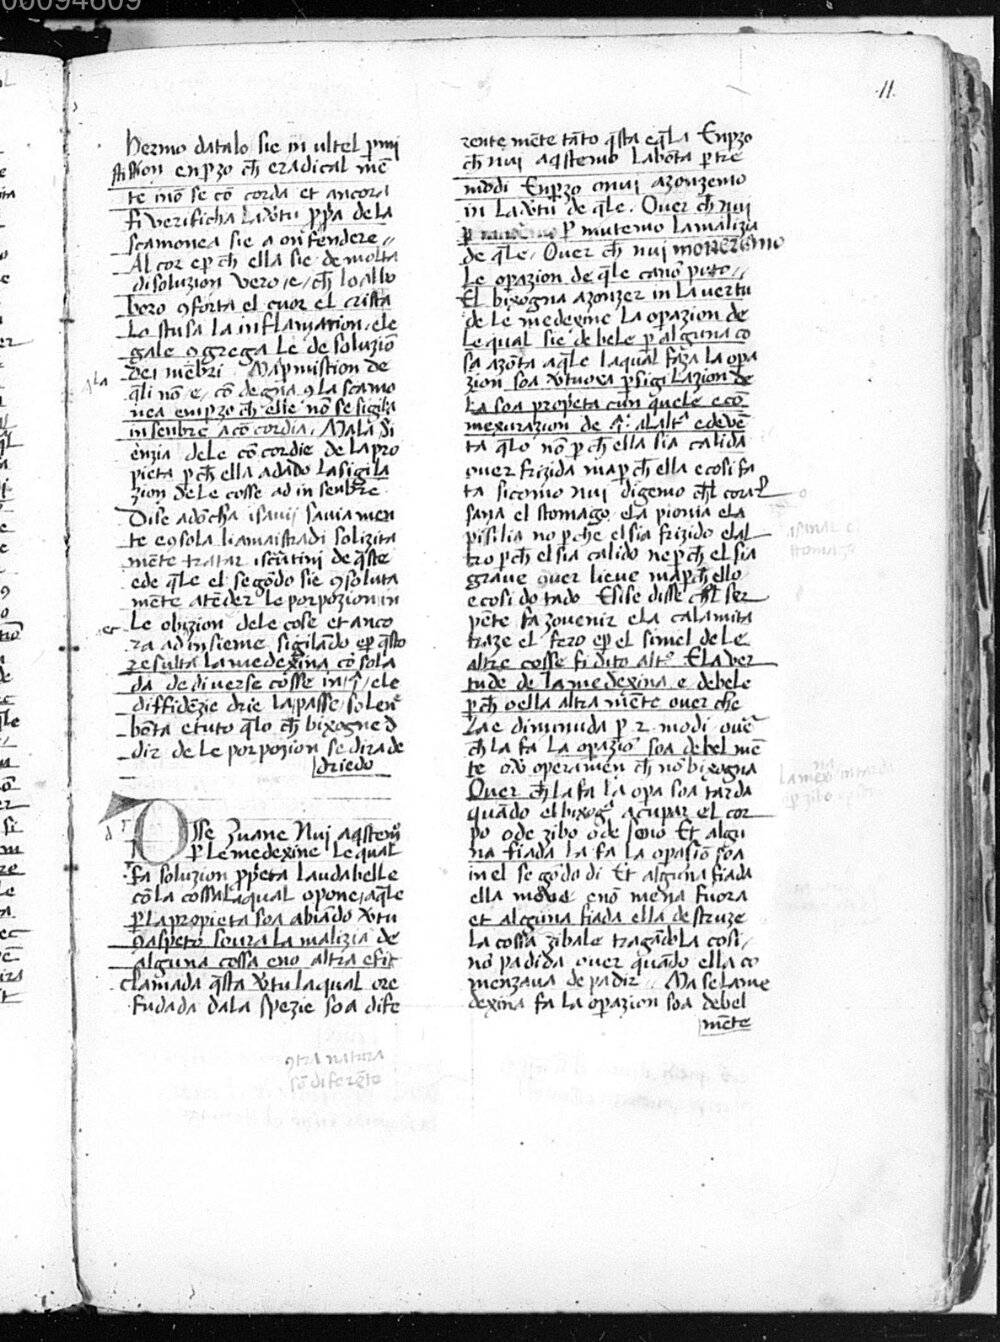 00094609
11
hermo datalo sie in ultel p̄mi
stistion enp̄zo ch̄ eradical mē
te inō se cō corda et ancora
fi verificha la v̄tu p̄pa dela
scamonea sie a onfendere
Al cor ep̄ ch̄ ella sie de molta
disoluzion vero/e/ch̄ lo albo
boro 9forta el cuor el crista
lo stusa la inflamation/ele
gale 9grega le de soluziō
dei mēbri Map̄ mistion de
ala
q̄li nō/e/cō degna 9la scamo
nea emp̄zo ch̄ elie nō se sigila
in senbre a cō cordia, Mala si
ēnzia dele cō cordie dela pro
pieta p̄ ch̄ ella a dado la sigila
zion de le cosse ad in senbre
Dise adōcha isauij savia men
te e9sola li amaistradi solizita
mēte tratar iscrutini de q̄ste
ede q̄le el segōdo sie 9soluta
mēte atēder le porpozion in
le obizion dele cose et anco
ra ad insieme sigilādo ep̄ q̄sto
resulta la medexina cō sola
da de diverse cosse in / ele
diffidēzie drie la passe/solen
bēta e tuto q̄lo ch̄ bixogne d̄
dir de le porpozion se dira de
driedo
Osse Zuane Nui aq̄stem̄o
p̄ le medexine le qual
fa soluzion p̄p̄eta laudabelle
cō la cossa la qual opone/aq̄le
p̄ la propieta soa abiādo v̄tu
9aspeto soura la malizia de
alguna cossa eno altra efit
clamada q̄sta v̄tu la qual ore
fudada dala spezie soa dife
9tra natura
sō diferēte
rente mēte tāto q̄sta e q̄la Enp̄zo
ch̄ nui aq̄stemo la bōta p̄ tre
modi Enp̄zo omui azonzemo
in la v̄tu de q̄le. Over ch̄ nui
p̄ p̄ mutemo la malizia
de q̄le/ Over ch̄ nui moneremo
le op̄azion de q̄le canō
El bixogna azonzer in la vertu
de le medexine la op̄azion de
le qual sie debele p̄ alguna co
sa azōta aq̄le la qual faza la opa
zion soa v̄tuoxa p̄ sigilazion de
la soa propeta cun quele e cō
mexurazion de alalt ede vē
ta q̄lo nō p̄ ch̄ ella sia calida
over frizida ma p̄ ch̄ ella e cosi fa
ta sicomo nui digemo ch̄l coral
sana el stomago ela pionia ela
pisilia no p̄ che el sia frizido elal
tro p̄ ch̄ el sia calido ne p̄ ch̄ el sia
grave over lieve ma p̄ ch̄ ello
e cosi do tado E sise disse ch̄l ser
pēte fa zovenir ela calamita
traze el fero ep̄ el simel dele
altre cosse fi dito alt E la ver
tude de la medexina e debele
p̄ ch̄ o ella altra mēte over che
la e diminuda p̄ 2 modi ove
ch̄ la fa la op̄azio soa debel mē
te odv operamen ch̄ nō bixogna
Over ch̄ la fa la opa soa tarda
quādo el bixog acupar el cor
po ode zibo ode sono Et algu
na fiada la fa la opasiō soa
in el segōdo di Et alguna fiada
ella move enō mena fuora
et alguna fiada ella destruze
la cossa zibale tragādola cosi
nō padida over quādo ella co
menzava de padir Ma se la me
dexina fa la op̄azion soa debel
mēte